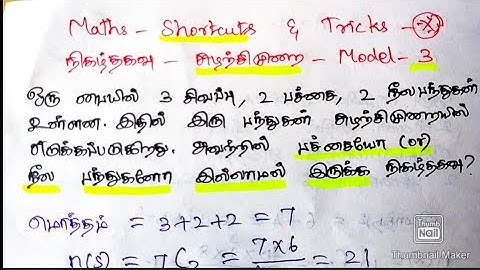 Maths - Shortcuts & Tricks -
நிகழ்தகவு - சுழற்சிமுறை - Model - 3
ஒரு பையில் 3 சிவப்பு, 2 பச்சை, 2 நீல பந்துகள்
உள்ளன. இதில் இரு பந்துகள் சுழற்சிமுறையில்
எடுக்கப்படுகிறது. அவற்றில் பச்சையோ (or)
நீல பந்துகளோ இல்லாமல் இருக்க நிகழ்தகவு?
மொத்தம் = 3+2+2 = 7
n(s) = 7C₂ = 7x6 = 21
Thumb
Nail
Thumbnail Maker